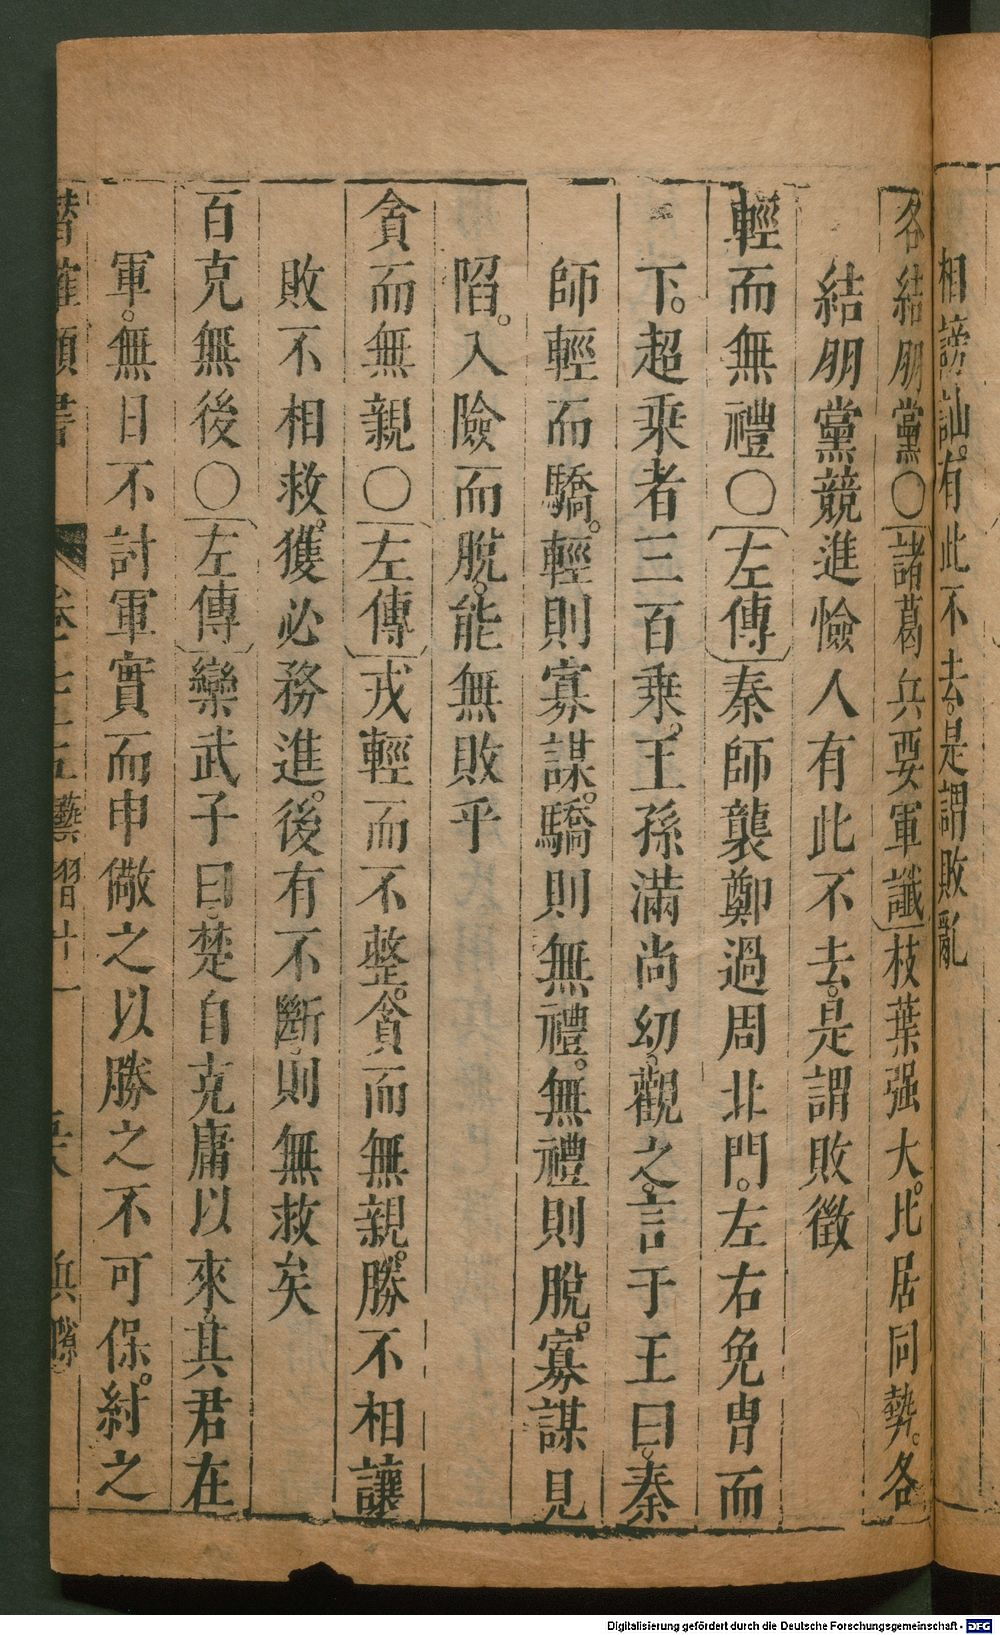 相謗訕有此不去是謂敗亂
各結朋黨○諸葛兵要軍讖枝葉强大比居同勢各
結朋黨競進憸人有此不去是謂敗徵
輕而無禮○左傳秦師襲鄭過周北門左右免胄而
下超乗者三百乗王孫滿尚幼觀之言于王曰秦
師輕而驕輕則寡謀驕則無禮無禮則脫寡謀見
陷入險而脫能無敗乎
貪而無親○左傳戎輕而不整貪而無親勝不相讓
敗不相救獲必務進後有不斷則無救矣
百克無後○左傳欒武子曰楚自克庸以來其君在
軍無日不討軍實而申儆之以勝之不可保紂之
潛確類書 卷七十五藝習廿一 兵隙
Digitalisierung gefördert durch die Deutsche Forschungsgemeinschaft - DFG